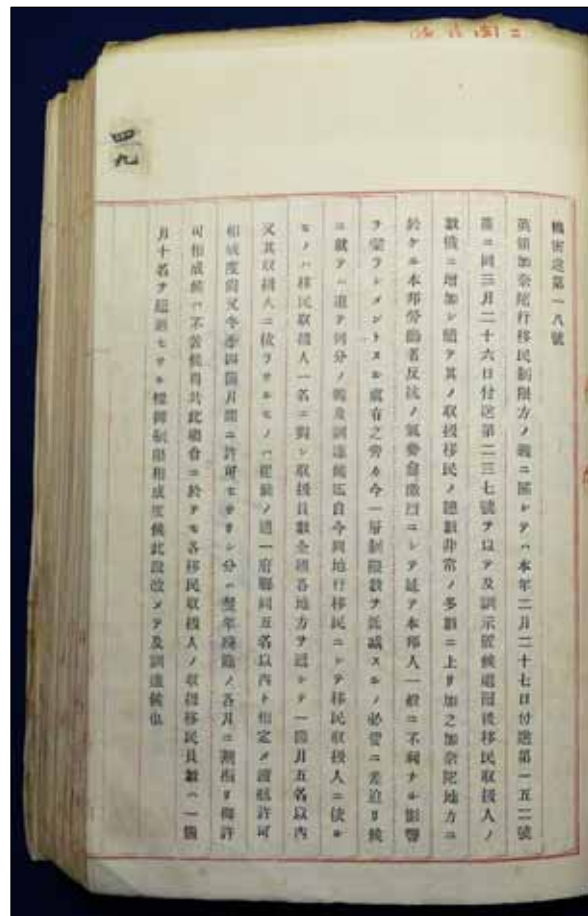 四九
機密送第一八號
英領加奈陀行移民制限方ノ義ニ關シテハ本年二月二十七日付送第一五二號
幷ニ同三月二十六日付送第二三七號ヲ以テ及訓示置候處爾後移民取扱人ノ
數俄ニ增加シ隨テ其ノ取扱移民ノ總數非常ノ多額ニ上リ加之加奈陀地方ニ
於ケル本邦勞働者反抗ノ氣勢愈激烈ニシテ延テ本邦人一般ニ不利ナル影響
ヲ蒙ラシメントスル虞有之旁以今一層制限數ヲ低減スルノ必要ニ差迫リ候
ニ就テハ追テ何分ノ義及訓達候迄自今同地行移民ニシテ移民取扱人ニ依ル
モノハ移民取扱人一名ニ對シ取扱員數全國各地方ヲ通シテ一箇月五名以內
又其取扱人ニ依ラサルモノハ從前ノ通一府縣同五名以內ト相定メ渡航許可
相成度尚又冬季四箇月間ニ許可セサリシ分ハ翌年殘餘ノ各月ニ割振リ御許
可相成候ハ不苦候得共此場合ニ於テモ各移民取扱人ノ取扱移民員數ハ一箇
月十名ヲ超過セサル樣御制限相成度候此段改メテ及訓達候也